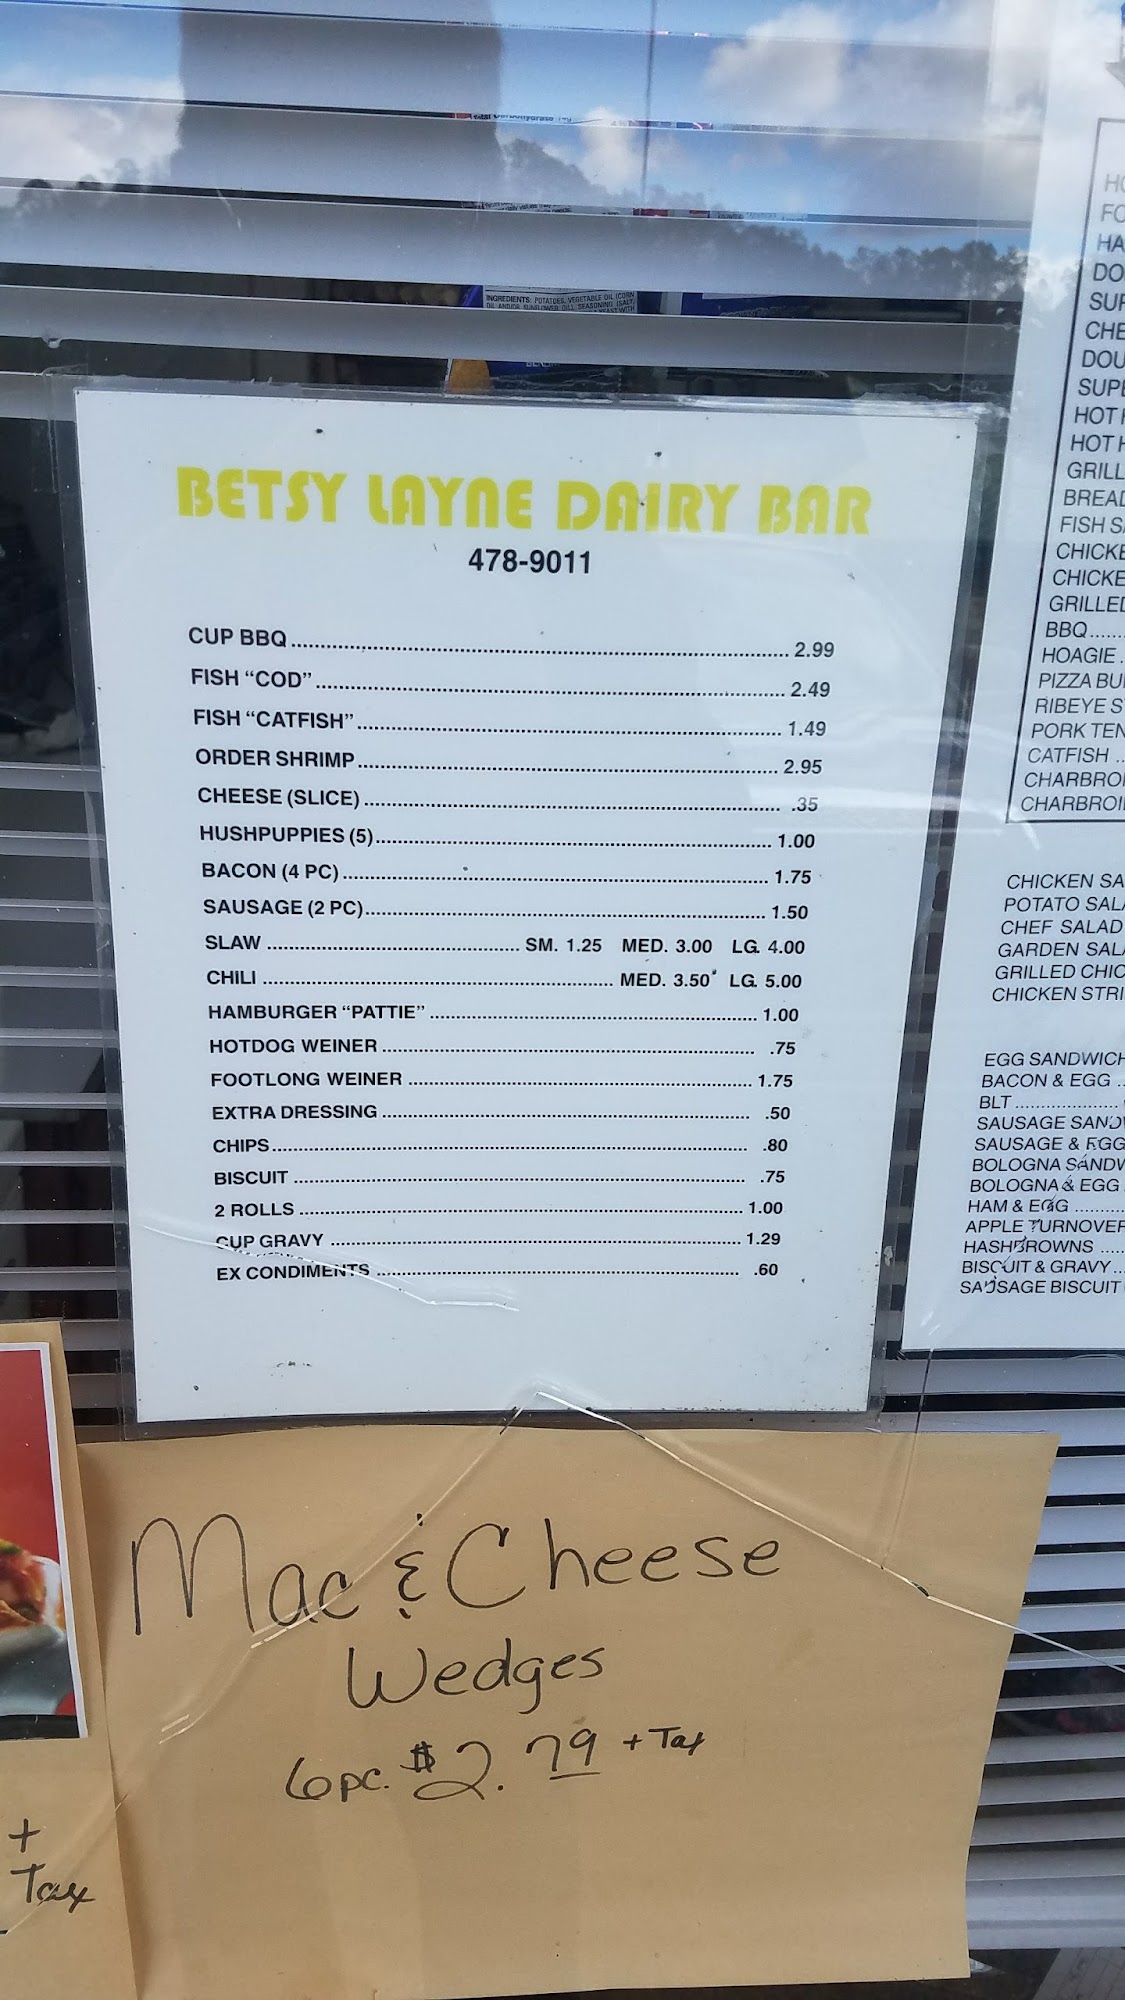 BETSY LAYNE DAIRY BAR
478-9011
CUP BBQ 2.99
FISH “COD” 2.49
FISH “CATFISH” 1.49
ORDER SHRIMP 2.95
CHEESE (SLICE) .35
HUSHPUPPIES (5) 1.00
BACON (4 PC) 1.75
SAUSAGE (2 PC) 1.50
SLAW SM. 1.25 MED. 3.00 LG. 4.00
CHILI MED. 3.50 LG. 5.00
HAMBURGER “PATTIE” 1.00
HOTDOG WEINER .75
FOOTLONG WEINER 1.75
EXTRA DRESSING .50
CHIPS .80
BISCUIT .75
2 ROLLS 1.00
CUP GRAVY 1.29
EX CONDIMENTS .60
Mac & Cheese
Wedges
6 pc. $2.79 + Tax
+
Tax
INGREDIENTS: POTATOES, VEGETABLE OIL (CORN
HOT
HOT
BBQ
HOAGIE
PIZZA
RIBEYE
PORK
CATFISH
CHICKEN
POTATO
CHEF SALAD
GARDEN
GRILLED
CHICKEN
EGG SANDWICH
BACON & EGG
BLT
SAUSAGE
SAUSAGE & EGG
BOLOGNA
BOLOGNA & EGG
HAM & EGG
APPLE TURNOVER
HASHBROWNS
BISCUIT & GRAVY
SAUSAGE BISCUIT